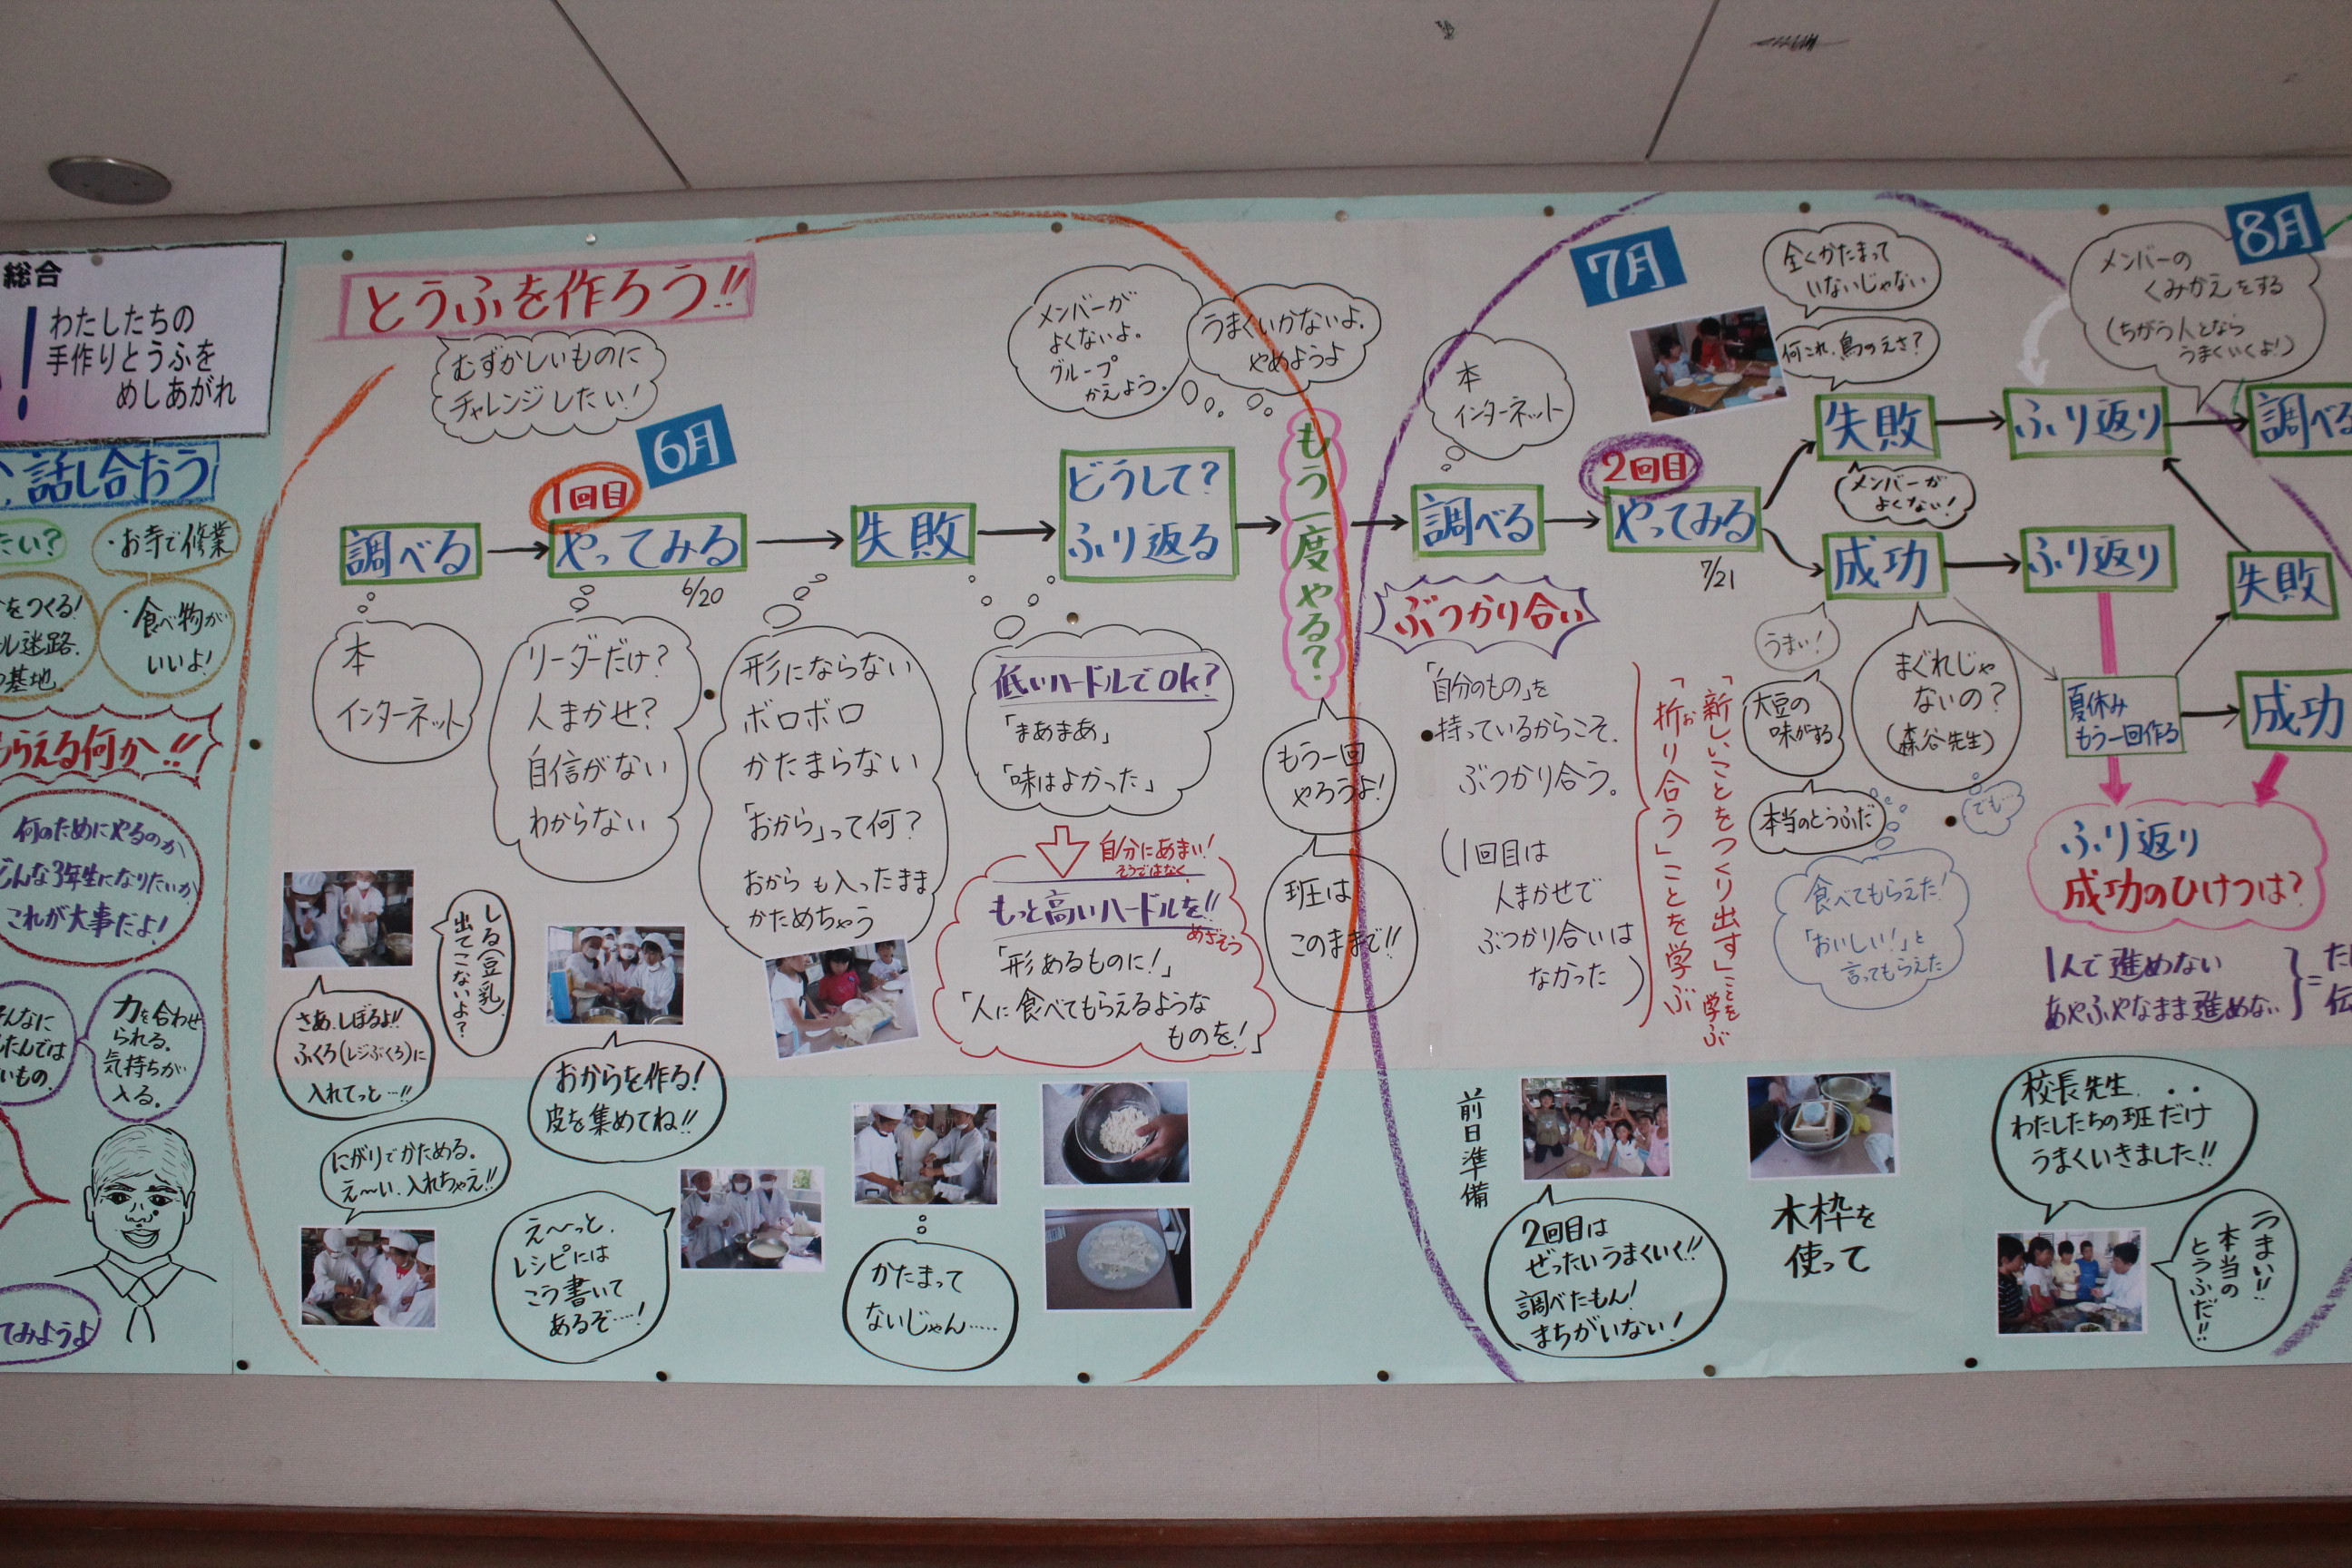 総合
!
わたしたちの
手作りとうふを
めしあがれ
話し合おう
たい?
・お寺で修業
をつくる!
ル迷路.
基地.
・食べ物が
いいよ!
もらえる何か!!
何のためにやるのか
どんな3年生になりたいか
これが大事だよ!
そんなに
いもの.
力を合わせ
られる.
気持ちが
入る.
てみようよ
とうふを作ろう!!
むずかしいものに
チャレンジしたい!
6月
1回目
調べる
やってみる
6/20
失敗
どうして?
ふり返る
メンバーが
よくないよ。
グループ
かえよう.
うまくいかないよ.
やめようよ
もう一度やる?
本
インターネット
リーダーだけ?
人まかせ?
自信がない
わからない
形にならない
ボロボロ
かたまらない
「おから」って何?
おからも入ったまま
かためちゃう
低いハードルでOk?
「まあまあ」
「味はよかった」
自分にあまい!
そうではなく
もっと高いハードルを!!
めざそう
「形あるものに!」
「人に食べてもらえるような
ものを!」
もう一回
やろうよ!
班は
このままで!!
しる(豆乳)
出てこないよ?
さあ、しぼるよ!!
ふくろ(レジぶくろ)に
入れてっと…!!
おからを作る!
皮を集めてね!!
にがりでかためる.
え〜い、入れちゃえ!!
え〜っと、
レシピには
こう書いて
あるぞ……!
かたまって
ないじゃん……
7月
本
インターネット
調べる
2回目
やってみる
7/21
全くかたまって
いないじゃない
何これ、鳥のえさ?
失敗
メンバーが
よくない!
ふり返り
8月
メンバーの
くみかえをする
(ちがう人となら
うまくいくよ!)
調べる
成功
ふり返り
失敗
ぶつかり合い
「自分のもの」を
持っているからこそ.
ぶつかり合う。
(1回目は
人まかせで
ぶつかり合いは
なかった)
「新しいことをつくり出す」ことを学ぶ
「折り合う」ことを学ぶ
お
うまい!
大豆の
味がする
本当のとうふだ
まぐれじゃ
ないの?
(森谷先生)
でも…
食べてもらえた!
「おいしい!」と
言ってもらえた
夏休み
もう一回作る
成功
ふり返り
成功のひけつは?
1人で進めない
あやふやなまま進めない
=
前日準備
2回目は
ぜったいうまくいく!!
調べたもん!
まちがいない!
木枠を
使って
校長先生、・・
わたしたちの班だけ
うまくいきました!!
うまい!!
本当の
とうふだ!!